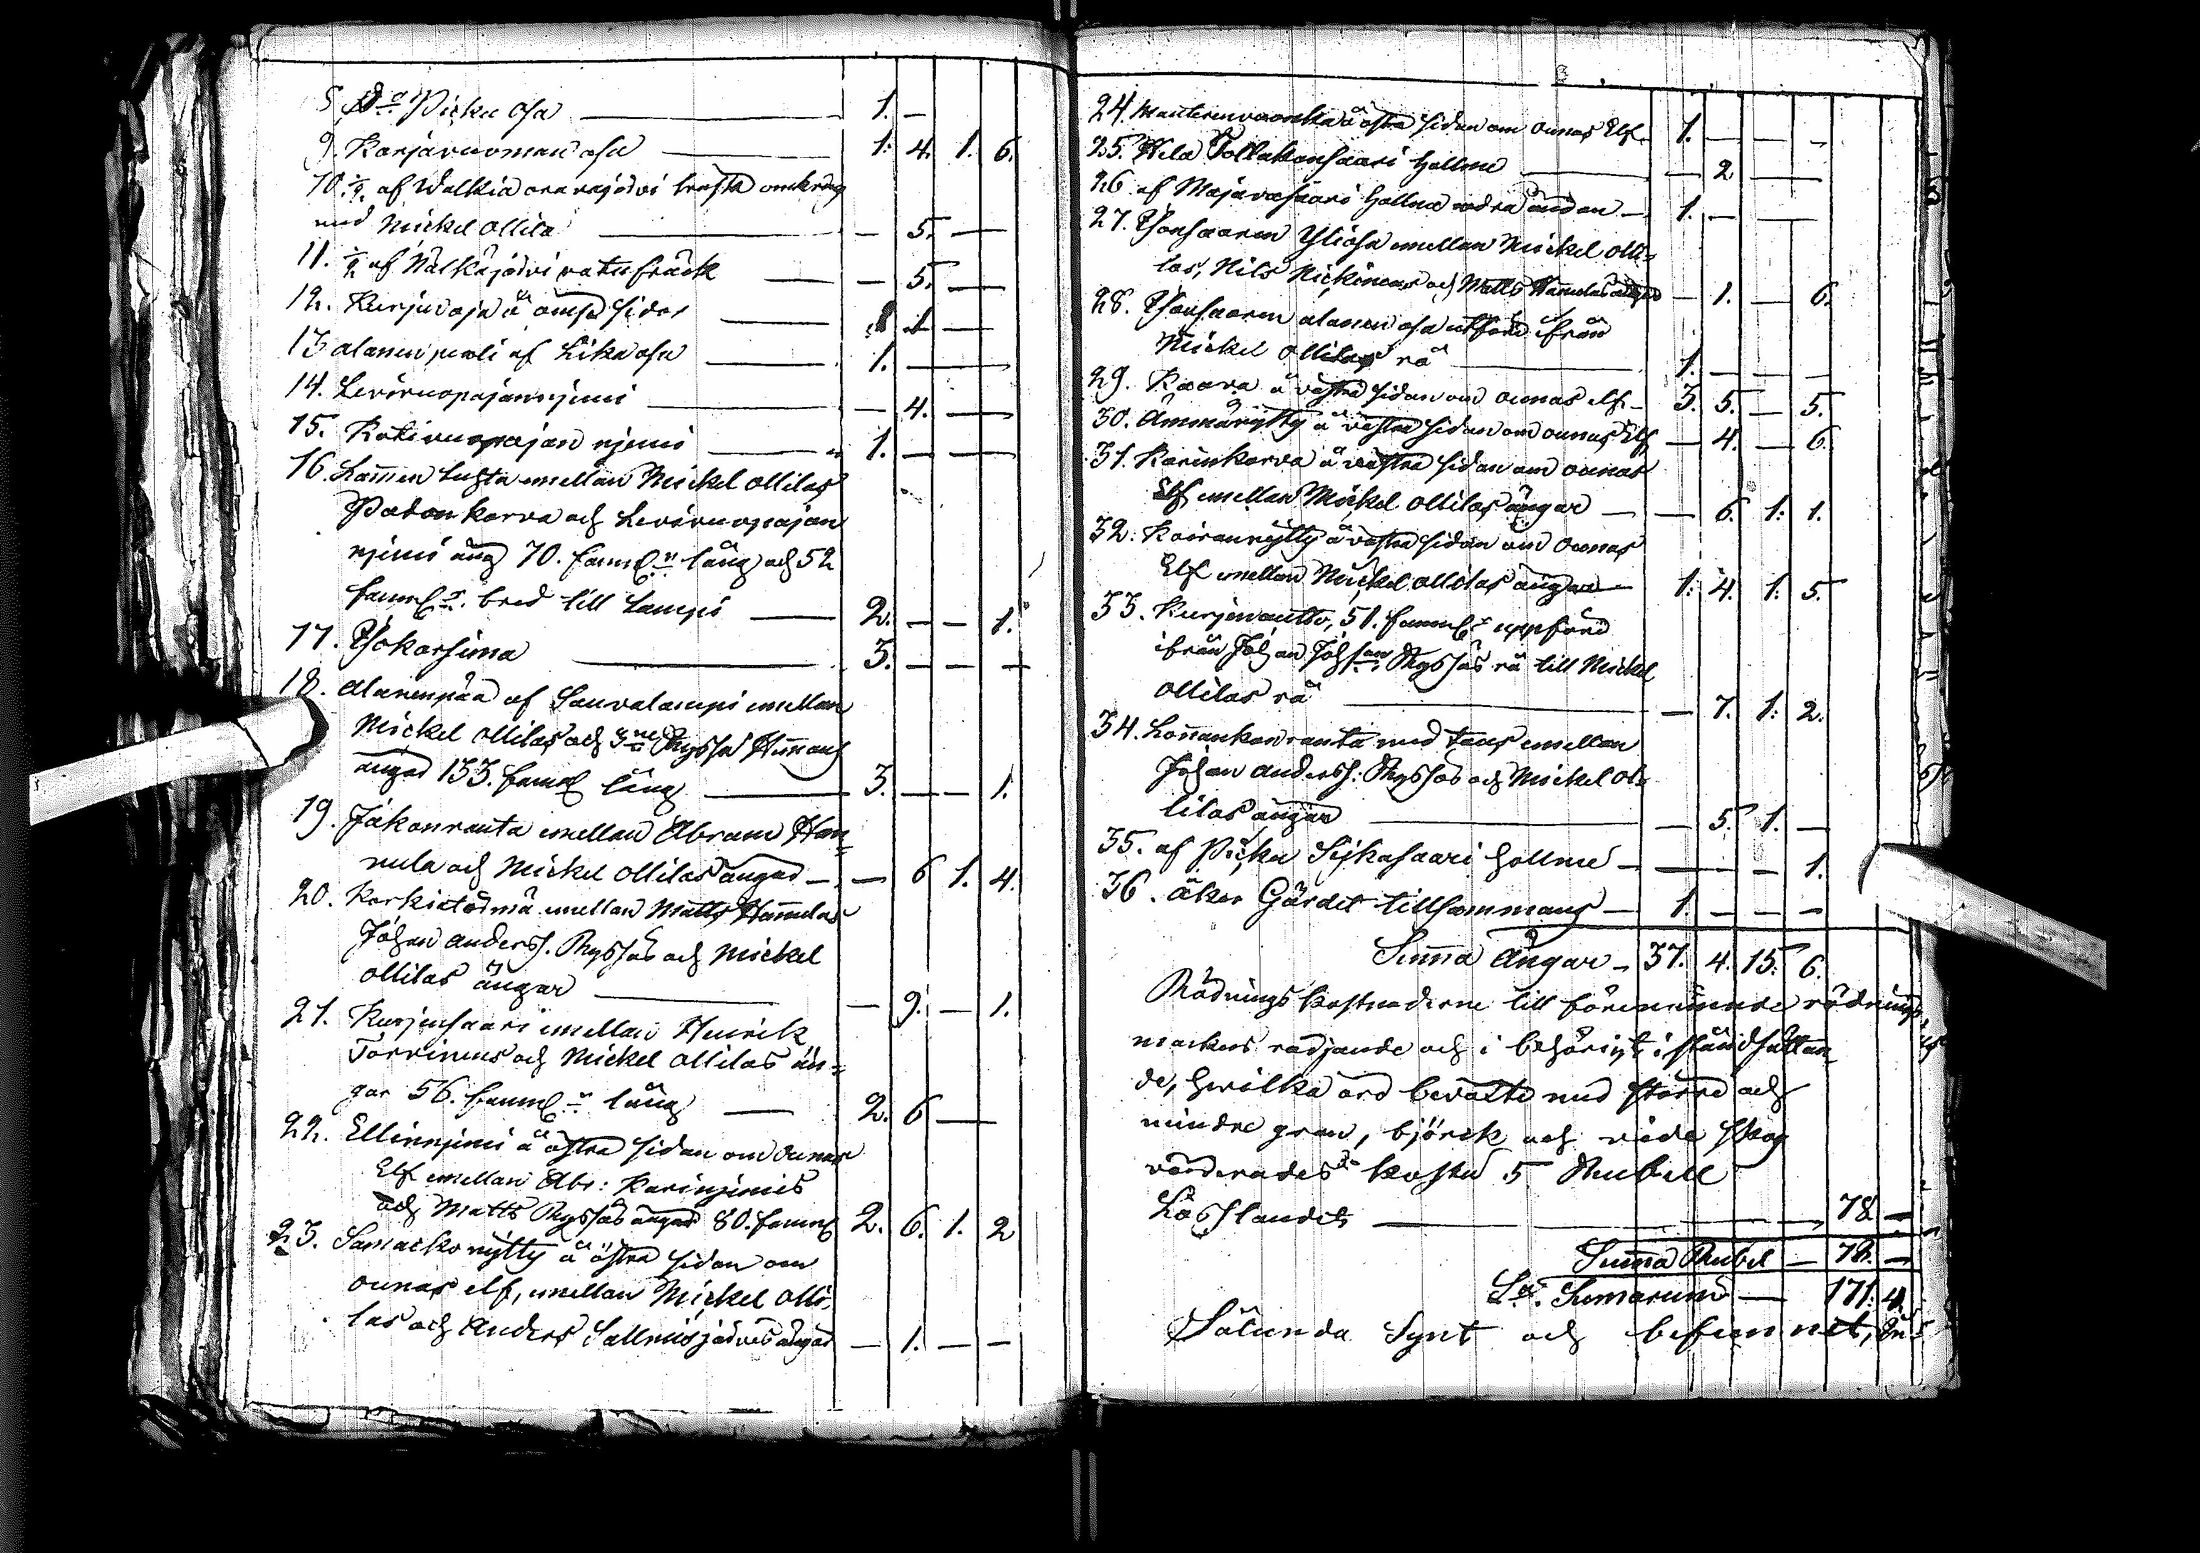 8 D:o Picku osa — 1. —
9. Karjavuoman osa — 1. 4. 1. 6.
10. ½ af Walkia träsk omkring
med Mickel Ollila — 5. —
11. ½ af Nälkäjärvi — 5. —
12. Kurjenoja å ömse sidor — 1 —
13 alanen puoli af Lika osa — 1. —
14. Levivuopajanniemi — 4. —
15. Kotivuopajan niemi — 1. — —
16. Lammen luhta emellan Mickel Ollilas
Padonkorva och Levivuopajan
niemi äng 70. famn:r lång och 52
famn:r bred till Lampi — 2. — — 1.
17. Isokorsima — 3. — — —
18. alanenpää af Sauvalampi emellan
Mickel Ollilas och Thyssä Hemmans
ängar 133. famn lång — 3. — — 1.
19. Jäkonranta emellan Abram Han=
nula och Mickel Ollilas ängar — — 6 1. 4.
20. emellan Matts Hannulas
Johan Anderss. Thyssäs och Mickel
Ollilas ängar — — 9. — 1.
21. Kurjensaari emellan Henrik
Torvinens och Mickel Ollilas än=
gar 56. famn:r lång — 2. 6 —
22. Ellinniemi å östra sidan om ounas
Elf emellan Abr: Kariniemis
och Matts Thyssäs ängar 80. famn 2. 6. 1. 2
23. nytty å östra sidan om
ounas elf, emellan Mickel Olli,
las och Anders Sallmisjärvis ängar — 1. — —
24. å östra sidan om ounas Elf. 1. — — —
25. Hela Pollakansaari hollme — — 2 —
26 af Majavasaari hollme nedra ändan — 1. — —
27. Isonsaaren Yliosa emellan Mickel Olli=
las, Nils och Matts Hannulas ängar — 1. — 6.
28. Isonsaaren alanen osa utförd ifrån
Mickel Ollilas rå — 1. — — —
29. Kaara å västra sidan om ounas elf — 3. 5. — 5.
30. Ämmänytty å västra sidan om ounas Elf — 4. — 6.
31. Karinkorva å västra sidan om ounas
Elf emellan Mickel Ollilas ängar — — 6. 1. 1.
32. å västra sidan om ounas
Elf emellan Mickel Ollilas ängar — 1. 4. 1. 5.
33. 51. famn:r uppförd
ifrån Johan Joh:son Thyssäs rå till Mickel
Ollilas rå — — 7. 1. 2.
34. med emellan
Johan Anderss: Thyssäs och Mickel Ol=
lilas ängar — — 5. 1. —
35. af Picku Sijkasaari hollme — — — — 1.
36. åker Gärdet tillsammans — 1. — — —
Summa Ängar — 37. 4. 15. 6.
Rödnings kostnaderne till förenämnde rödnings,
markens rödjande och i behörigt i ståndsättan
de, hwilka äro beväxte med större och
mindre gran, björck och vide skog
värderades kosta 5 Rubell
Lässlandet — 78 —
Summa Rubel — 78. —
S:a Summarum — 171. 4.
Sålunda Synt och befunnet,